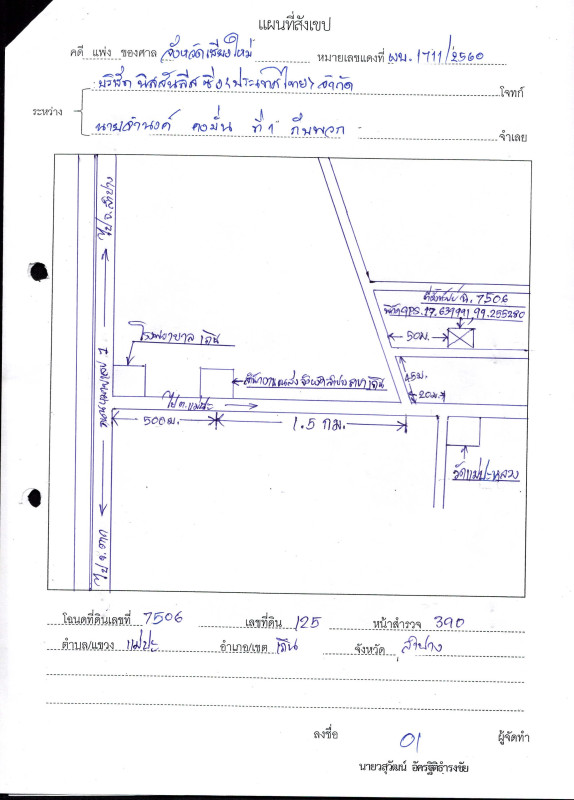 แผนที่สังเขป
คดี แพ่ง ของศาล จังหวัดเชียงใหม่ หมายเลขแดงที่ ผบ. 1711/2560
บริษัท นิสสัน ลีสซิ่ง (ประเทศไทย) จำกัด โจทก์
ระหว่าง
นายจำนงค์ คงมั่น ที่ 1 กับพวก จำเลย
ไป จ.ลำปาง
ถนนพหลโยธิน 1
ไป จ.ตาก
โรงพยาบาลเถิน
สำนักงานขนส่งจังหวัดลำปาง สาขาเถิน
ไป ต.แม่ปะ
500 ม.
1.5 กม.
ที่ดิน 7506
พิกัด GPS. 17.639991, 99.255280
50 ม.
45 ม.
20 ม.
วัดแม่ปะหลวง
โฉนดที่ดินเลขที่ 7506 เลขที่ดิน 125 หน้าสำรวจ 390
ตำบล/แขวง แม่ปะ อำเภอ/เขต เถิน จังหวัด ลำปาง
ลงชื่อ ผู้จัดทำ
นายวสุวัฒน์ อัครฐิติธำรงชัย